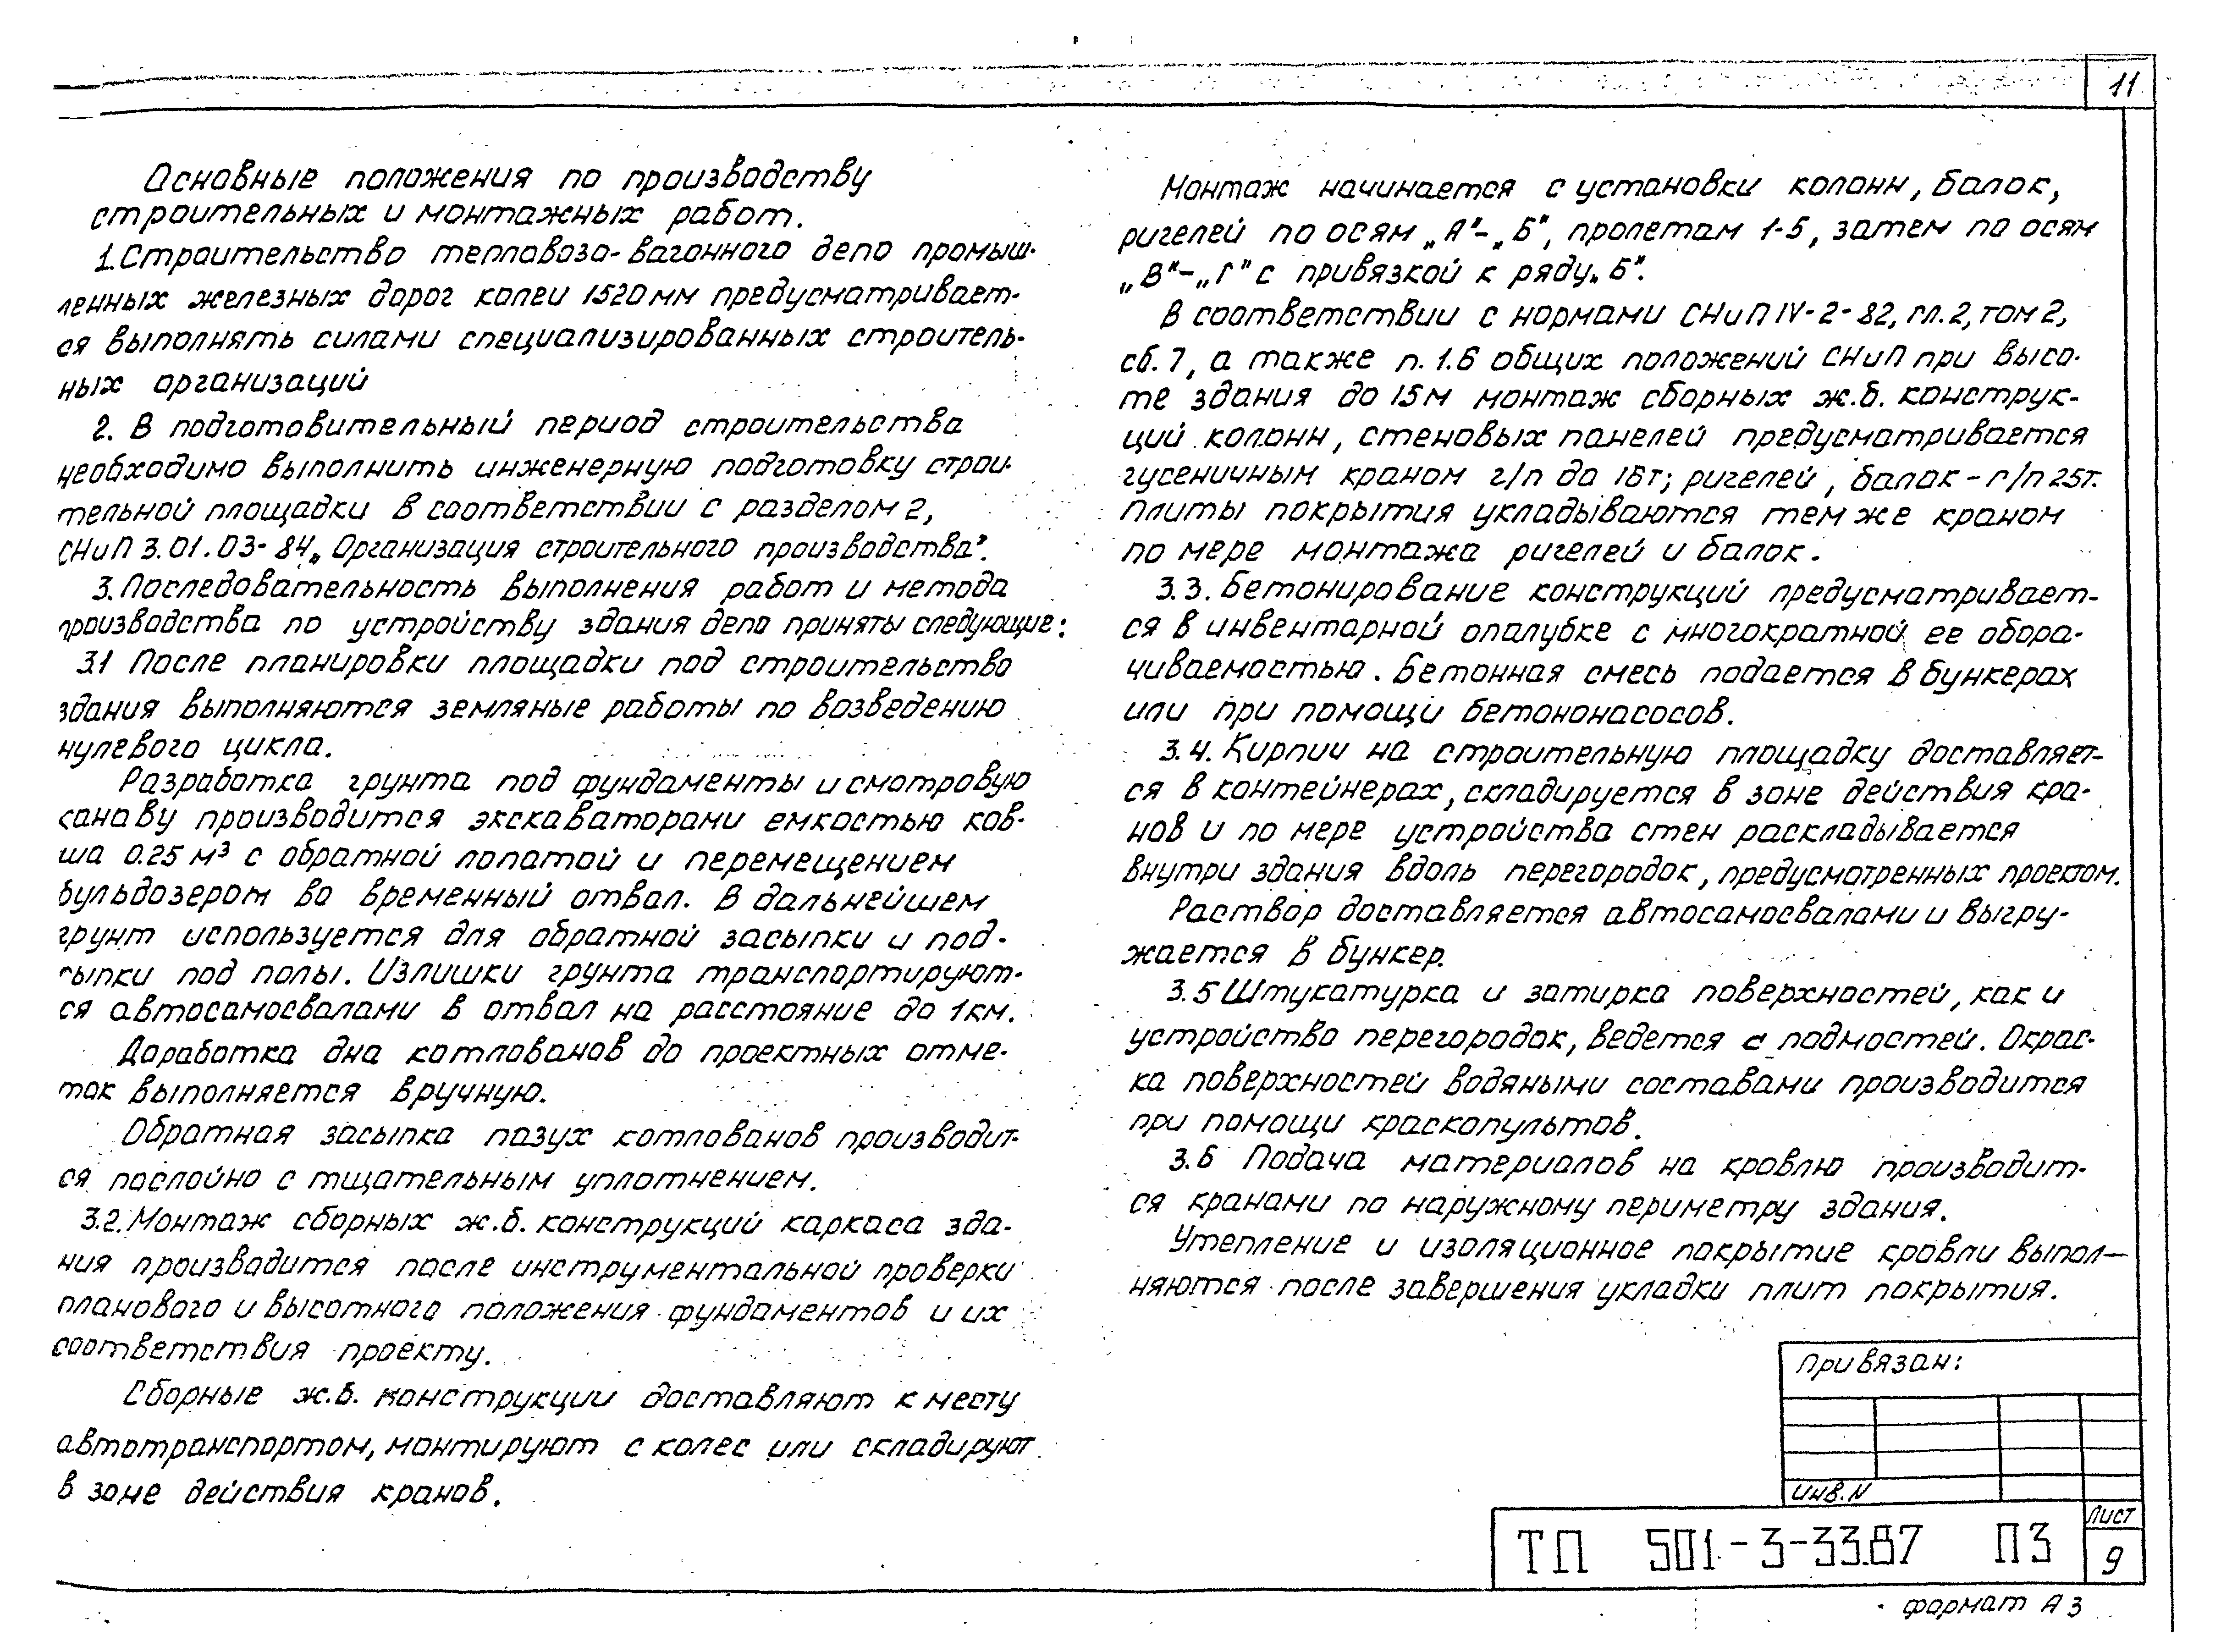 11
Основные положения по производству
строительных и монтажных работ.
1. Строительство тепловозо-вагонного депо промыш-
ленных железных дорог колеи 1520 мм предусматривает-
ся выполнять силами специализированных строитель-
ных организаций
2. В подготовительный период строительства
необходимо выполнить инженерную подготовку строи-
тельной площадки в соответствии с разделом 2,
СНиП 3.01.03-84 „Организация строительного производства”.
3. Последовательность выполнения работ и метода
производства по устройству здания депо приняты следующие:
3.1 После планировки площадки под строительство
здания выполняются земляные работы по возведению
нулевого цикла.
Разработка грунта под фундаменты и смотровую
канаву производится экскаваторами емкостью ков-
ша 0.25 м³ с обратной лопатой и перемещением
бульдозером во временный отвал. В дальнейшем
грунт используется для обратной засыпки и под-
сыпки под полы. Излишки грунта транспортируют-
ся автосамосвалами в отвал на расстояние до 1км.
Доработка дна котлованов до проектных отме-
ток выполняется вручную.
Обратная засыпка пазух котлованов производит-
ся послойно с тщательным уплотнением.
3.2. Монтаж сборных ж.б. конструкций каркаса зда-
ния производится после инструментальной проверки
планового и высотного положения фундаментов и их
соответствия проекту.
Сборные ж.б. конструкции доставляют к месту
автотранспортом, монтируют с колес или складируют
в зоне действия кранов.
Монтаж начинается с установки колонн, балок,
ригелей по осям „А”-„Б”, пролетам 1-5, затем по осям
„В”-„Г” с привязкой к ряду „Б”.
В соответствии с нормами СНиП IV-2-82, гл.2, том 2,
сб. 7, а также п. 1.6 общих положений СНиП при высо-
те здания до 15м монтаж сборных ж.б. конструк-
ций колонн, стеновых панелей предусматривается
гусеничным краном г/п до 16т; ригелей, балок - г/п 25т.
Плиты покрытия укладываются тем же краном
по мере монтажа ригелей и балок.
3.3. Бетонирование конструкций предусматривает-
ся в инвентарной опалубке с многократной ее обора-
чиваемостью. Бетонная смесь подается в бункерах
или при помощи бетононасосов.
3.4. Кирпич на строительную площадку доставляет-
ся в контейнерах, складируется в зоне действия кра-
нов и по мере устройства стен раскладывается
внутри здания вдоль перегородок, предусмотренных проектом.
Раствор доставляется автосамосвалами и выгру-
жается в бункер.
3.5 Штукатурка и затирка поверхностей, как и
устройство перегородок, ведется с подмостей. Окрас-
ка поверхностей водяными составами производится
при помощи краскопультов.
3.6 Подача материалов на кровлю производит-
ся кранами по наружному периметру здания.
Утепление и изоляционное покрытие кровли выпол-
няются после завершения укладки плит покрытия.
Привязан:
Инв. N
ТП 501-3-33.87 ПЗ
Лист
9
формат А3